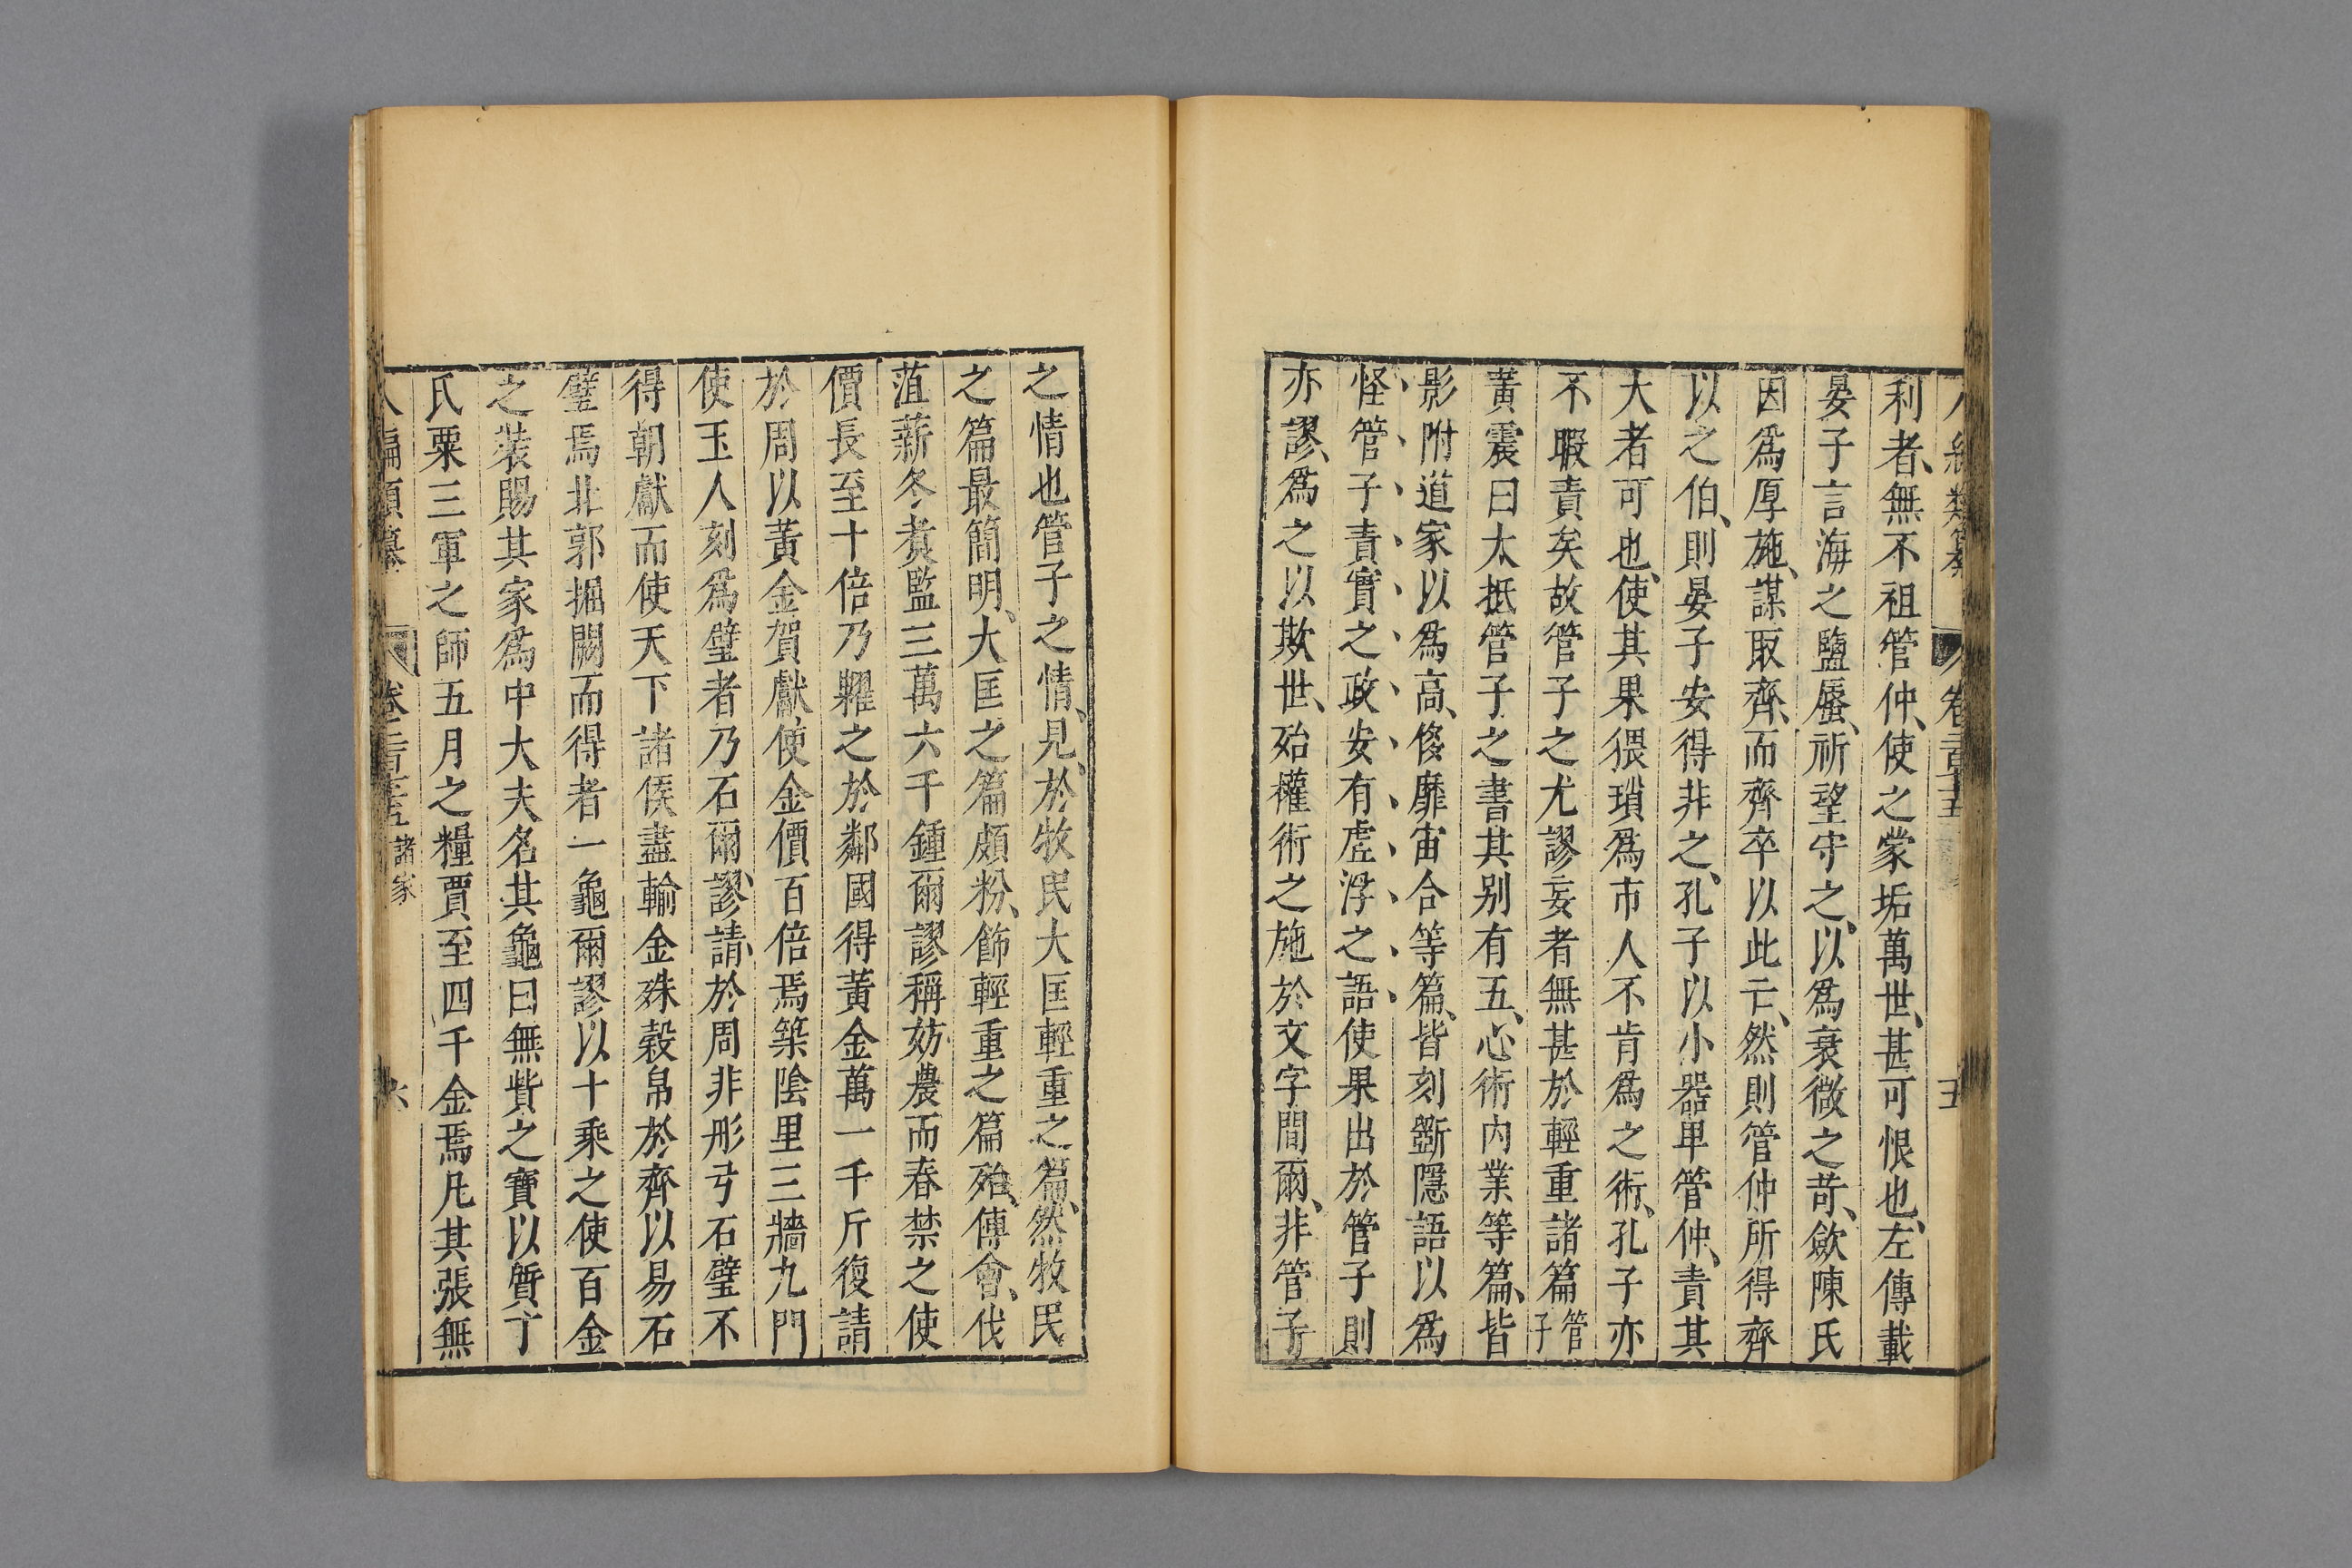 利者、無不祖管仲、使之蒙垢萬世、甚可恨也、左傳載
晏子言海之鹽蜃、祈望守之、以爲衰微之苛、歛陳氏
因爲厚施、謀取齊、而齊卒以此亡、然則管仲所得齊
以之伯、則晏子安得非之、孔子以小器卑管仲、責其
大者可也、使其果猥瑣爲市人不肯爲之術、孔子亦
不暇責矣故管子之尤謬妄者無甚於輕重諸篇管子
黃震曰大抵管子之書其别有五、心術内業等篇、皆
影附道家以爲高、侈靡宙合等篇、皆刻斵隱語以爲
怪管子責實之政安有虛浮之語使果出於管子則
亦謬、爲之以欺世、殆權術之施於文字間爾、非管子
之情也管子之情、見、於牧民大匡輕重之篇、然牧民
之篇最簡明、大匡之篇頗粉、飾輕重之篇殆、傳會、伐
菹薪冬煑監三萬六千鍾爾謬稱妨農而春禁之使
價長至十倍乃糶之於鄰國得黃金萬一千斤復請
於周以黃金賀獻使金價百倍焉築陰里三牆九門
使玉人刻爲璧者乃石爾、謬請、於周非彤弓石璧不
得朝獻而使天下諸侯盡輸金珠穀帛於齊以易石
璧焉北郭掘闕而得者一龜爾謬以十乘之使百金
之裝賜其家爲中大夫名其龜曰無貲之寶以質丁
氏粟三軍之師五月之糧賈至四千金焉凡其張無
諸家
六